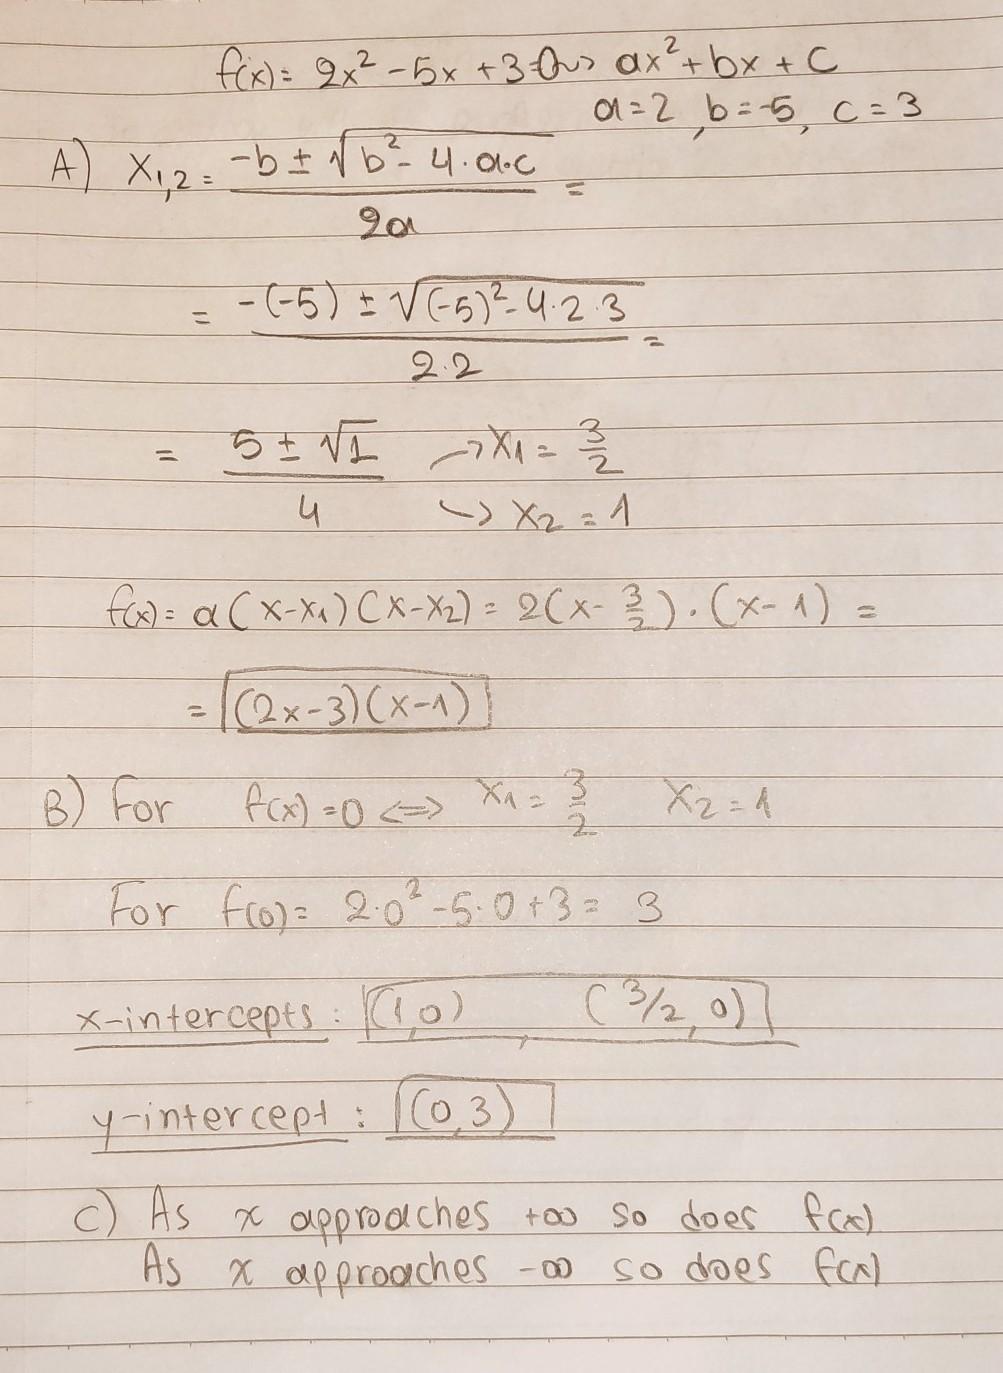 f(x) = 2x² - 5x + 3 = 0 ~> ax² + bx + c
a = 2, b = -5, c = 3
A) x₁,₂ = (-b ± √(b² - 4·a·c)) / 2a =
= (-(-5) ± √((-5)² - 4·2·3)) / 2·2 =
= (5 ± √1) / 4 → x₁ = 3/2
↪ x₂ = 1
f(x) = a(x-x₁)(x-x₂) = 2(x - 3/2)·(x-1) =
= (2x-3)(x-1)
B) For f(x) = 0 <=> x₁ = 3/2 x₂ = 1
For f(0) = 2·0² - 5·0 + 3 = 3
x-intercepts: (1,0), (3/2, 0)
y-intercept: (0,3)
C) As x approaches +∞ so does f(x)
As x approaches -∞ so does f(x)